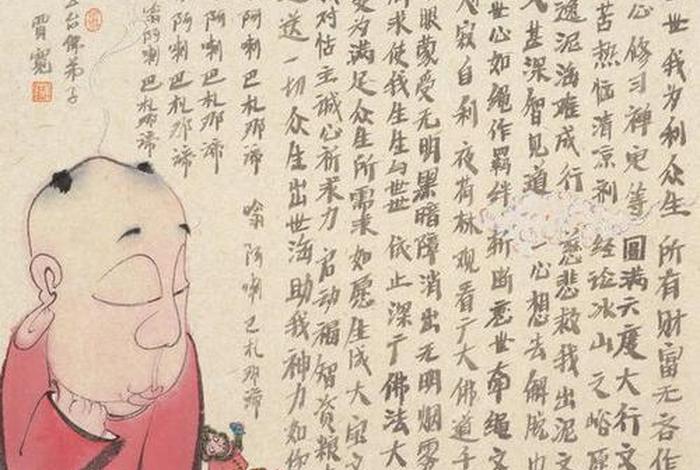 世我为利众生所有财富无吝作
心修习禅定等圆满六度大行
苦热恼清凉剂经论冰山之峪
逸泥海难成行慈悲救我出泥
甚深智见道一心想去解脱
世心如绳作羁绊斩断恶世牵绳
寂自利夜荷林观看于大佛道
眼蒙受无明黑暗障消出无明烟雾
求使我生生与世世依止深广佛法大
为满足众生所需求如愿生成大宝
对怙主诚心祈求力启动福智资粮
送一切众生出世海助我神力如
阿喇巴札那谛嗡阿喇巴札那谛
阿喇巴札那谛
阿喇巴札那谛
嗡阿喇巴札那谛
台佛弟子
贾宽